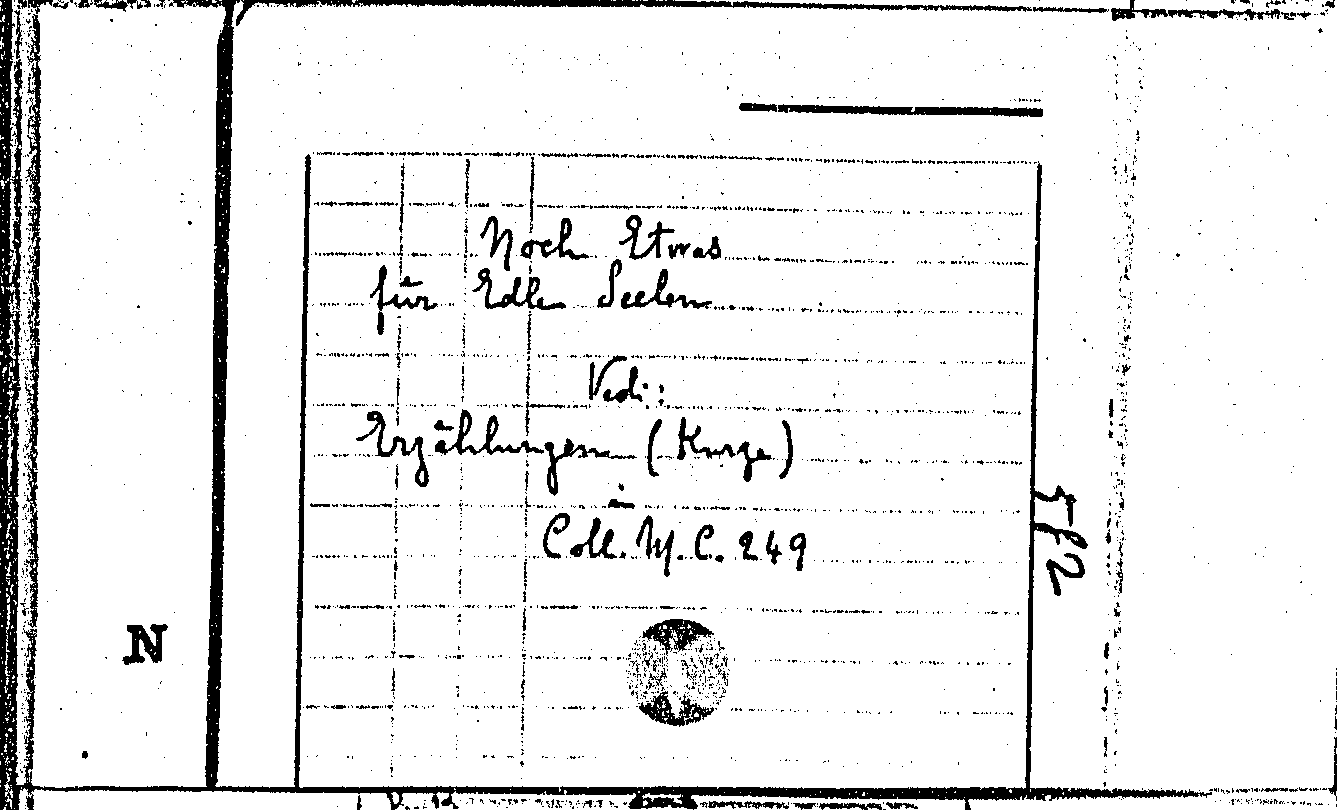 Noch Etwas
für Edle Seelen
Vedi:
Erzählungen (Kurze)
in
Coll. M. C. 249
582
N